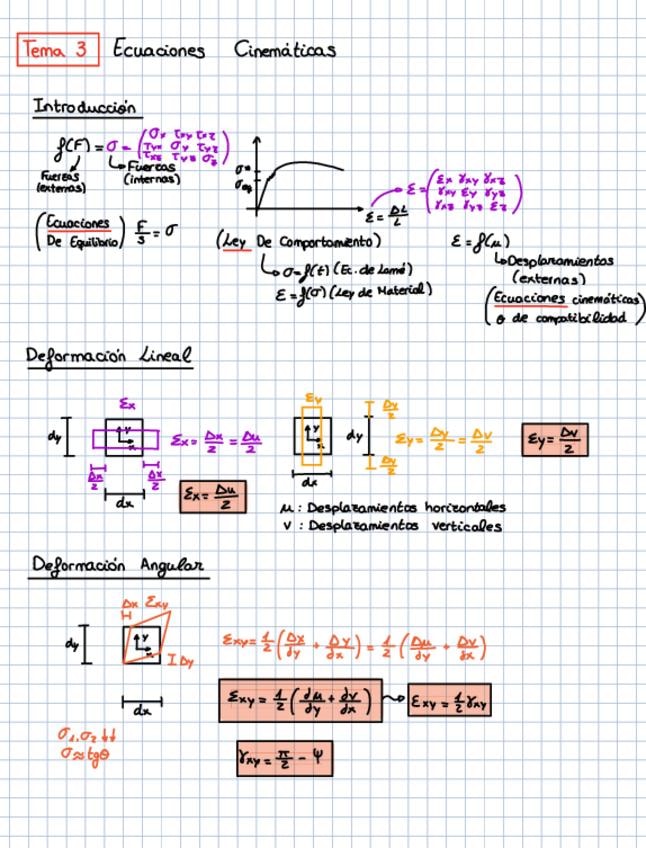 Tema 3 Ecuaciones Cinemáticas
Introducción
f(F) = σ = (σx τxy τxz
τyx σy τyz
τxz τyz σz)
Fuerzas (externas)
Fuerzas (internas)
(Ecuaciones De Equilibrio) F/S = σ
ε = ΔL/L
ε = (εx γxy γxz
γxy εy γyz
γxz γyz εz)
(Ley De Comportamiento)
σ = f(ε) (Ec. de Lamé)
ε = f(σ) (Ley de Material)
ε = f(μ)
Desplazamientos (externas)
(Ecuaciones cinemáticas
o de compatibilidad)
Deformación Lineal
εx
dy
Δx/2
Δx/2
dx
εx = Δx/2 = Δu/2
εx = Δu/2
εy
dx
dy
Δy/2
Δy/2
εy = Δy/2 = Δv/2
εy = Δv/2
μ : Desplazamientos horizontales
v : Desplazamientos verticales
Deformación Angular
Δx εxy
dy
Δy
dx
εxy = 1/2 (Δx/dy + Δy/dx) = 1/2 (Δu/dy + Δv/dx)
εxy = 1/2 (du/dy + dv/dx) → εxy = 1/2 γxy
σ1, σ2 ↓↓
σ ≈ tgθ
γxy = π/2 - Ψ